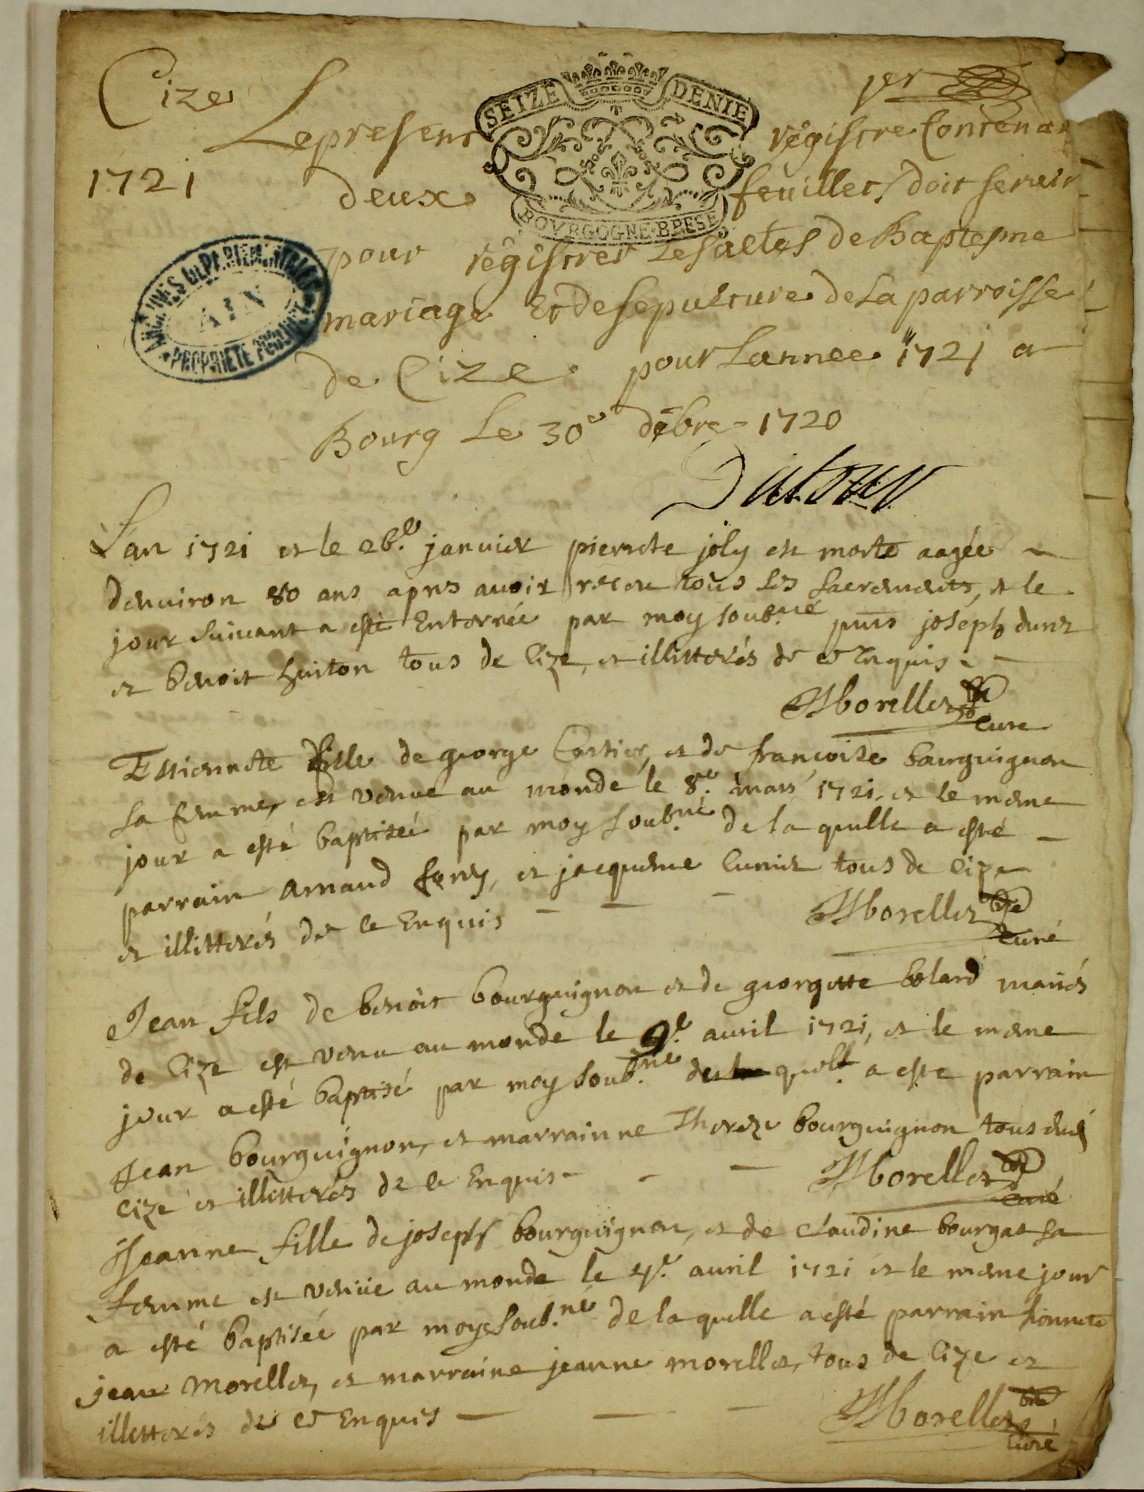 Cize
1721
SEIZE DENIE
BOVRGOGNE BRESE
ARCHIVES DEPARTEMENTALES
AIN
PROPRIETE PUBLIQUE
per
Le present régistre Contenan
deux feuillets doit servir
pour régistrer Les actes de Baptesme
mariage Et de sepulture de La parroisse
de Cize pour Lannee 1721 a
Bourg Le 30e debre 1720
Lan 1721 et le 26.e janvier pierrete joly est morte aagée
denviron 80 ans apres avoir receu tous les sacrements, et le
jour suivant a esté Enterrée par moy soub.né puis joseph
et benoit huiton tous de Cize, et illitterés de ce Enquis
Morellet
Curé
Estiennete fille de george Cartier, et de françoise bourguignon
sa femme, est venue au monde le 8.e mars 1721, et le meme
jour a esté baptisée par moy soub.né de la quelle a esté
parrain Arnaud fony, et jacqueme Cunit tous de Cize
et illitterés de ce Enquis
Morellet
Curé
Jean fils de benoit bourguignon et de georgette bolard mariés
de Cize est venu au monde le 9.e avril 1721, et le meme
jour a esté baptisé par moy soub.né du quel a este parrain
Jean bourguignon, et marrainne Thereze bourguignon tous
Cize et illitterés de ce Enquis
Morellet
Curé
Jeanne fille de joseph bourguignon, et de Claudine bourgat sa
femme est venüe au monde le avril 1721 et le meme jour
a esté baptisée par moy soub.né de la quelle a esté parrain honnete
jean Morellet, et marraine jeanne morellet, tous de Cize et
illitterés de ce Enquis
Morellet
Curé